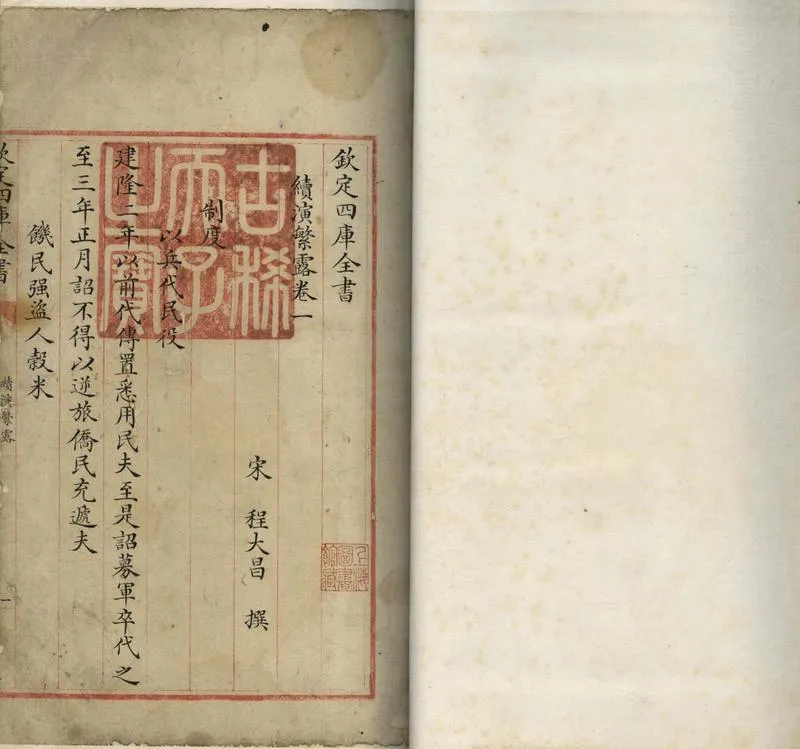 欽定四庫全書
續演繁露卷一
宋 程大昌 撰
制度
以兵代民役
建隆二年以前代傳置悉用民夫至是詔募軍卒代之
至三年正月詔不得以逆旅僑民充遞夫
饑民强盜人穀米
欽定四庫全書
續演繁露
一
古稀
天子
之寳
上海
圖書
館藏